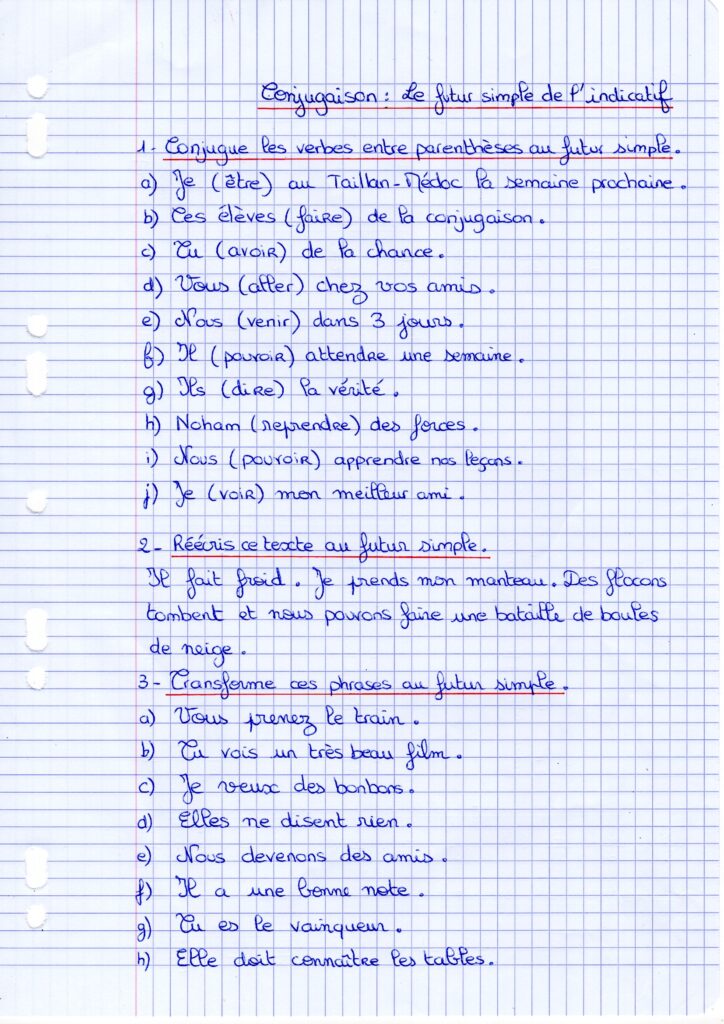 Conjugaison : Le futur simple de l'indicatif
1- Conjugue les verbes entre parenthèses au futur simple.
a) Je (être) au Taillan-Médoc la semaine prochaine.
b) Ces élèves (faire) de la conjugaison.
c) Tu (avoir) de la chance.
d) Vous (aller) chez vos amis.
e) Nous (venir) dans 3 jours.
f) Il (pouvoir) attendre une semaine.
g) Ils (dire) la vérité.
h) Noham (reprendre) des forces.
i) Nous (pouvoir) apprendre nos leçons.
j) Je (voir) mon meilleur ami.
2- Réécris ce texte au futur simple.
Il fait froid. Je prends mon manteau. Des flocons
tombent et nous pouvons faire une bataille de boules
de neige.
3- Transforme ces phrases au futur simple.
a) Vous prenez le train.
b) Tu vois un très beau film.
c) Je veux des bonbons.
d) Elles ne disent rien.
e) Nous devenons des amis.
f) Il a une bonne note.
g) Tu es le vainqueur.
h) Elle doit connaître les tables.